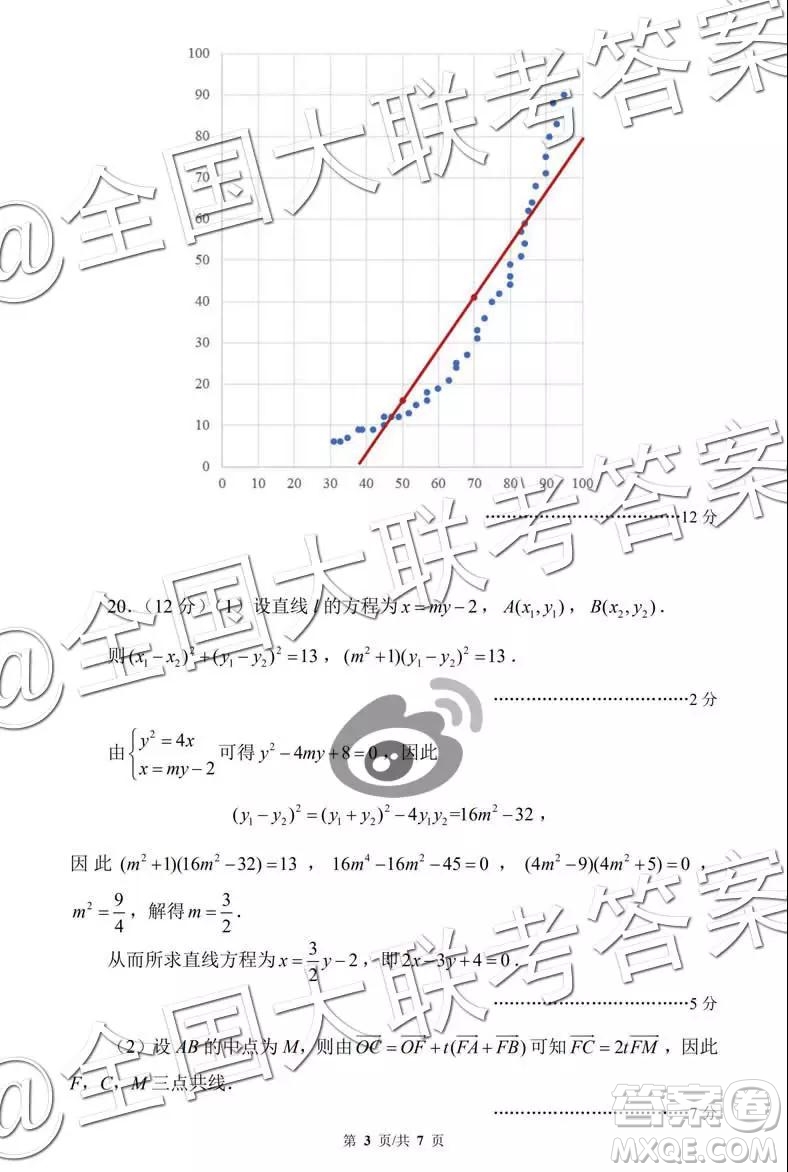 100
90
80
70
60
50
40
30
20
10
0
0 10 20 30 40 50 60 70 80 90 100
@全国大联考答案
@全国大联考答案
@全国大联考答案
⋯⋯⋯⋯⋯⋯⋯⋯⋯⋯⋯12 分
20．（12 分）（1）设直线 l 的方程为 x=my−2，A(x₁,y₁)，B(x₂,y₂)．
则(x₁−x₂)²+(y₁−y₂)²=13，(m²+1)(y₁−y₂)²=13．
⋯⋯⋯⋯⋯⋯⋯⋯⋯⋯⋯2 分
由{y²=4x
x=my−2 可得 y²−4my+8=0，因此
(y₁−y₂)²=(y₁+y₂)²−4y₁y₂=16m²−32，
因此 (m²+1)(16m²−32)=13，16m⁴−16m²−45=0，(4m²−9)(4m²+5)=0，
m²=9/4，解得 m=3/2．
从而所求直线方程为 x=3/2y−2，即 2x−3y+4=0．
⋯⋯⋯⋯⋯⋯⋯⋯⋯⋯⋯5 分
（2）设 AB 的中点为 M，则由 OC=OF+t(FA+FB) 可知 FC=2tFM，因此
F，C，M 三点共线．
⋯⋯⋯⋯⋯⋯⋯⋯⋯⋯⋯7 分
第 3 页/共 7 页
答案卷
MXQE.COM